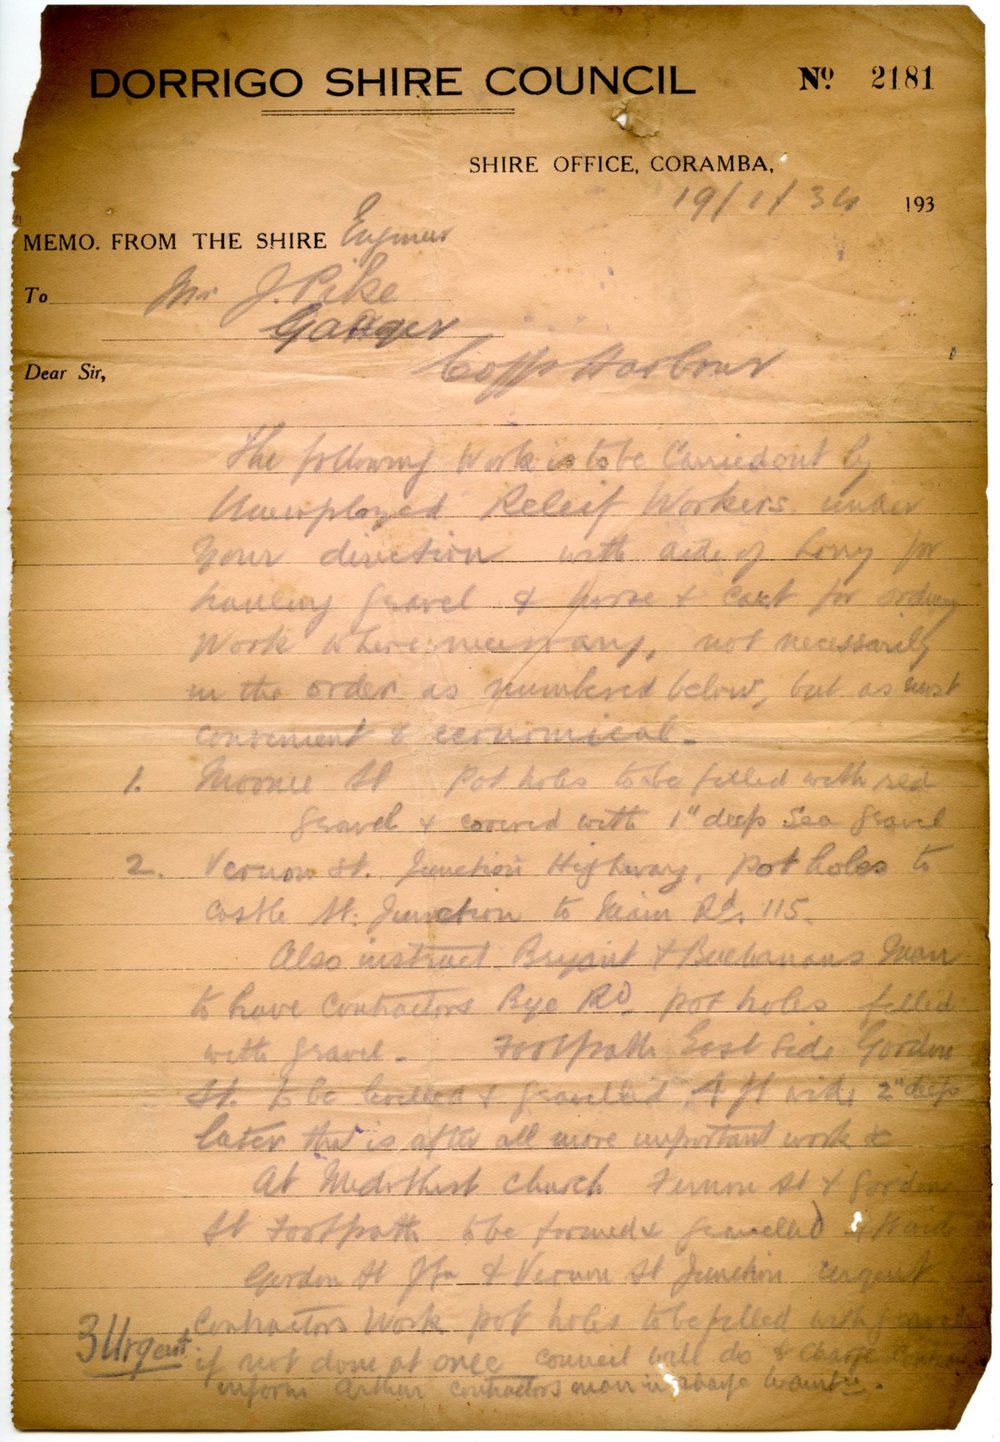 DORRIGO SHIRE COUNCIL Nº 2181
SHIRE OFFICE, CORAMBA,
19/1/34 193
MEMO. FROM THE SHIRE Engineer
To Mr J. Pike
Ganger
Dear Sir, Coffs Harbour
The following Work is to be Carried out by
Unemployed Releif Workers. under
Your direction with aid of Lorry for
hauling gravel & horse & Cart for ordinary
Work where necessary, not necessarily
in the order as numbered below, but as most
convenient & economical -
1. Moonee St Pot holes to be filled with red
gravel & covered with 1" deep Sea gravel
2. Vernon St. Junction Highway, Pot holes to
Castle St. Junction to Main Rd. 115.
Also instruct Bryant & Buchanans Man
to have Contractors Bye Rd. pot holes filled
with gravel - Footpath East Side Gordon
St. to be levelled & gravelled, 4 ft wide 2" deep
later that is after all more important work &
At Methodist Church Vernon St & Gordon
St Footpath to be formed & gravelled
Gordon St & Vernon St Junction urgent
3 Urgent Contractors Work pot holes to be filled with
if not done at once council will do & Charge
inform Arthur contractors man in charge